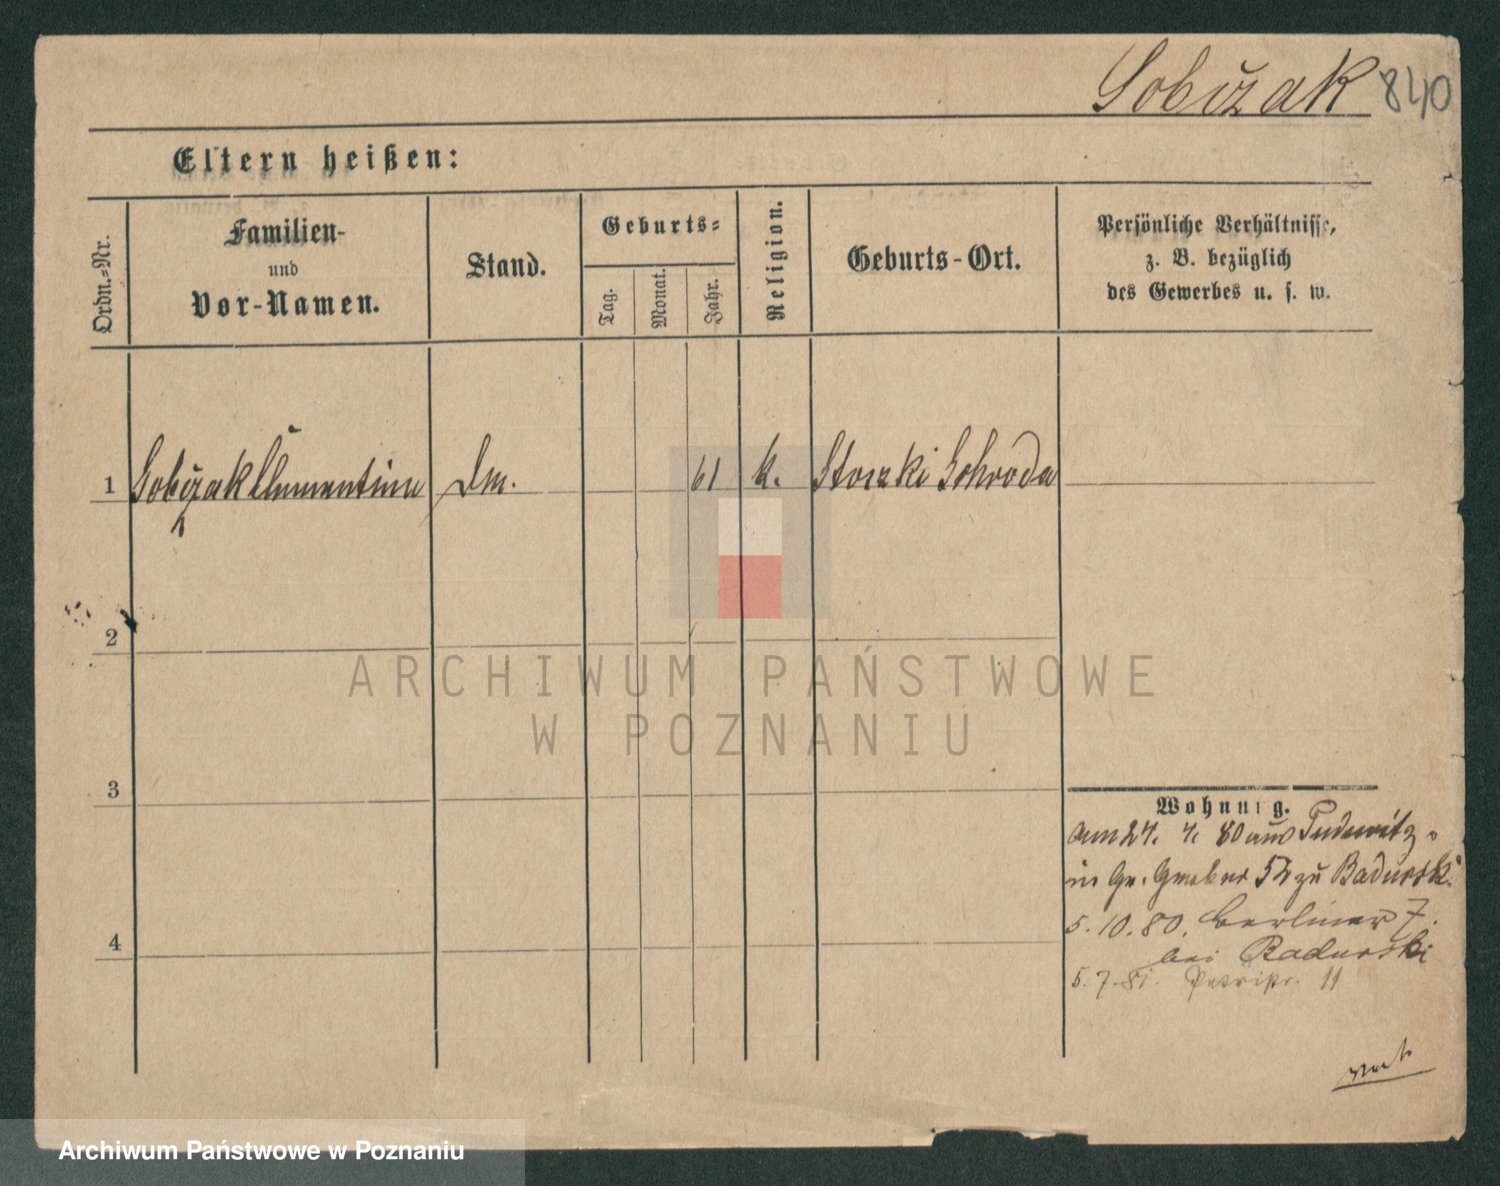 Sobižak 840
Eltern heißen:
Ordn.-Nr.
Familien-
und
Vor-Namen.
Stand.
Geburts-
Tag.
Monat.
Jahr.
Religion.
Geburts-Ort.
Persönliche Verhältnisse,
z. B. bezüglich
des Gewerbes u. s. w.
1 Sobižak Clementine Dm. 61 k. Schroda
2
ARCHIWUM PAŃSTWOWE
W POZNANIU
3
4
Wohnung.
am 27. 7. 80 aus Pudewitz
in Gr. Gerber 52 zu Badurski
5.10.80. Berliner 7.
bei Badurski
5.7.81. Petristr. 11
Archiwum Państwowe w Poznaniu